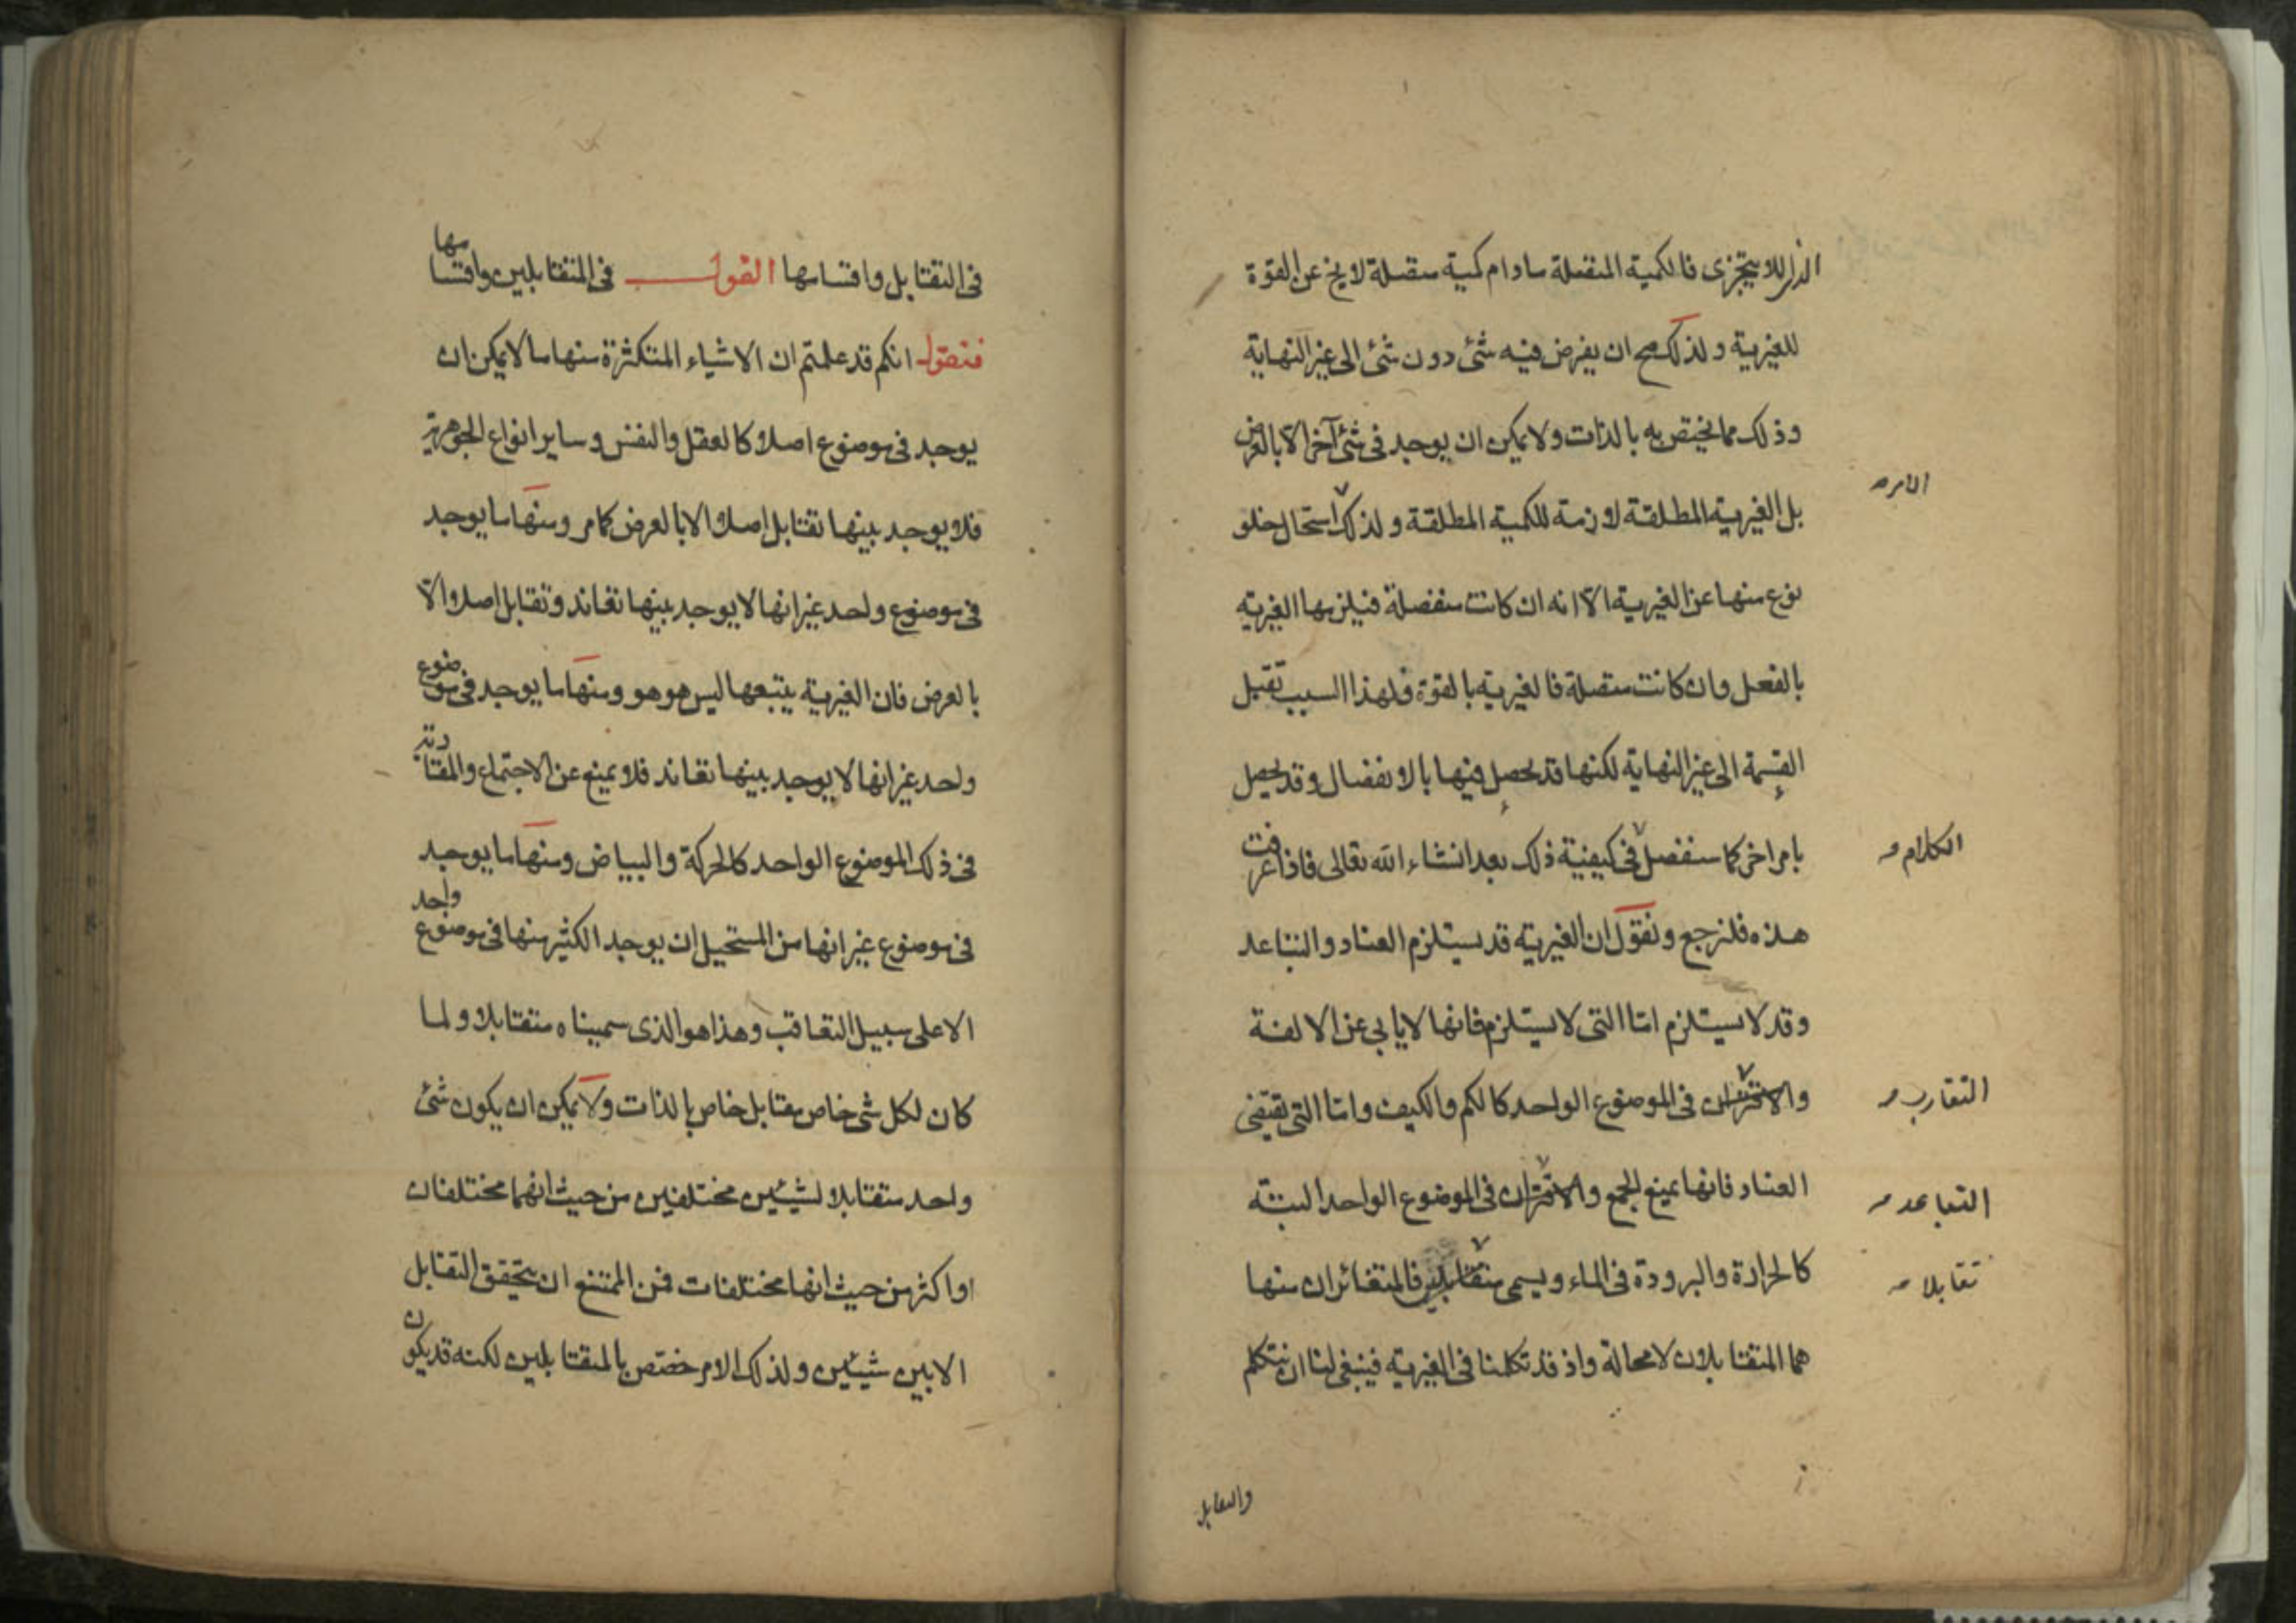 الذى لا يتجزى فالكمية المنفصلة مادام كمية متصلة لا يخ عن القوة
للغيرية ولذلك صح ان يفرض فيه شئ دون شئ الى غير النهاية
وذلك مما يختص به بالذات ولا يمكن ان يوجد فى شئ آخر الا بالعرض
بل الغيرية المطلقة لازمة للكمية المطلقة ولذلك استحال خلو
الامر
نوع منها عن الغيرية الا انه ان كانت منفصلة فيلزمها الغيرية
بالفعل وان كانت متصلة فالغيرية بالقوة فلهذا السبب تقبل
القسمة الى غير النهاية لكنها قد يحصل فيها بالانفصال وقد يحصل
بامر اخر كما سنفصل فى كيفية ذلك بعد انشاء الله تعالى فاذا عرفت
الكلام
هذه فلنرجع ونقول ان الغيرية قد يستلزم العناد والتباعد
وقد لا يستلزم اما التى لا يستلزم فانها لا يابى عن الالفة
والاقتران فى الموضوع الواحد كالكم والكيف واما التى تقتضى
التقارب
العناد فانها يمنع الجمع والاقتران فى الموضوع الواحد البتة
التباعد
كالحرارة والبرودة فى الماء ويسمى متقابلين فالمتغائران منها
تقابلا
هما المتقابلان لا محالة واذ قد تكلمنا فى الغيرية فينبغى لنا ان نتكلم
والتقابل
فى التقابل واقسامها القول فى المتقابلين واقسامها
فنقول انكم قد علمتم ان الاشياء المتكثرة منها ما لا يمكن ان
يوجد فى موضوع اصلا كالعقل والنفس وساير انواع الجوهرية
فلا يوجد بينها تقابل اصلا الا بالعرض كما مر ومنها ما يوجد
فى موضوع واحد غير انها لا يوجد بينها تعاند وتقابل اصلا والا
بالعرض فان الغيرية يتبعها ليس هو هو ومنها ما يوجد فى موضوع
واحد غير انها لا يوجد بينها تعاند فلا يمنع عن الاجتماع والمقارنة
فى ذلك الموضوع الواحد كالحركة والبياض ومنها ما يوجد
فى موضوع غير انها من المستحيل ان يوجد الكثير منها فى موضوع واحد
الا على سبيل التعاقب وهذا هو الذى سميناه متقابلا ولما
كان لكل شئ خاص مقابل خاص بالذات ولا يمكن ان يكون شئ
واحد متقابلا لشيئين مختلفين من حيث انهما مختلفان
او اكثر من حيث انها مختلفات فمن الممتنع ان يتحقق التقابل
الا بين شيئين ولذلك الامر خصتص بالمتقابلين لكنه قد يكون